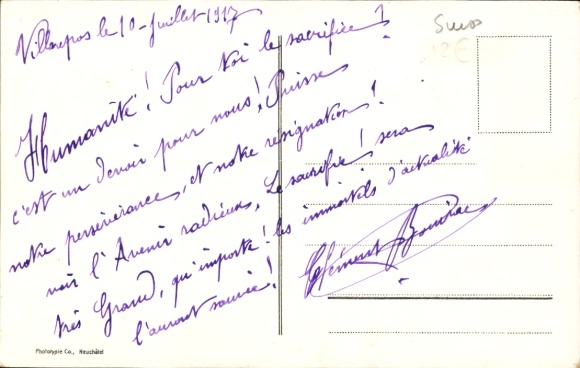 Villarepos le 10 Juillet 1917
Humanité! Pour toi le sacrifice?
c'est un devoir pour nous! Puisse
notre persévérance, et notre résignation!
voir l'Avenir radieux, Le sacrifice! sera
très Grand, qu'importe! les immortels d'actualité
l'auront sauvée!
Clément
Suisse
Phototypie Co., Neuchâtel